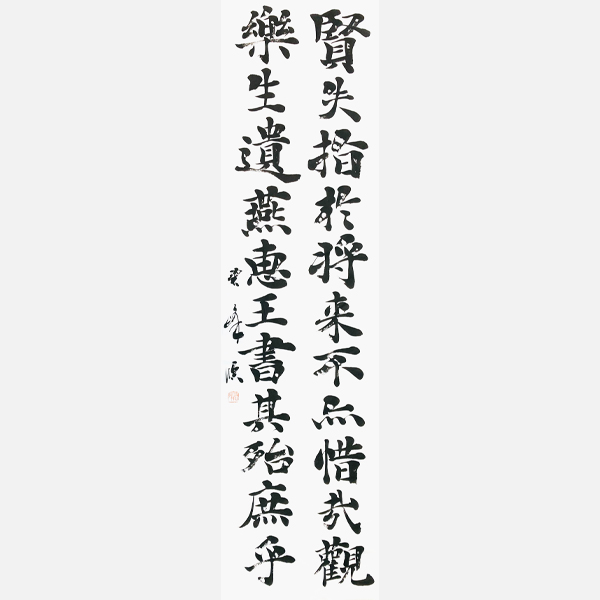 賢失指於将来不亦惜哉觀
樂生遺燕恵王書其殆庶乎